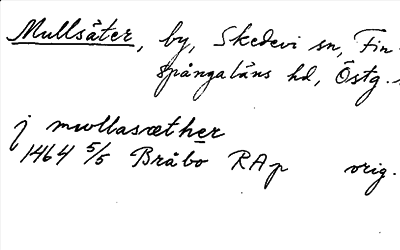 Mullsäter, by, Skedevi sn, Fin-
spångaläns hd, Östg.
j mwllasæther
1464 5/5 Bråbo RAp orig.